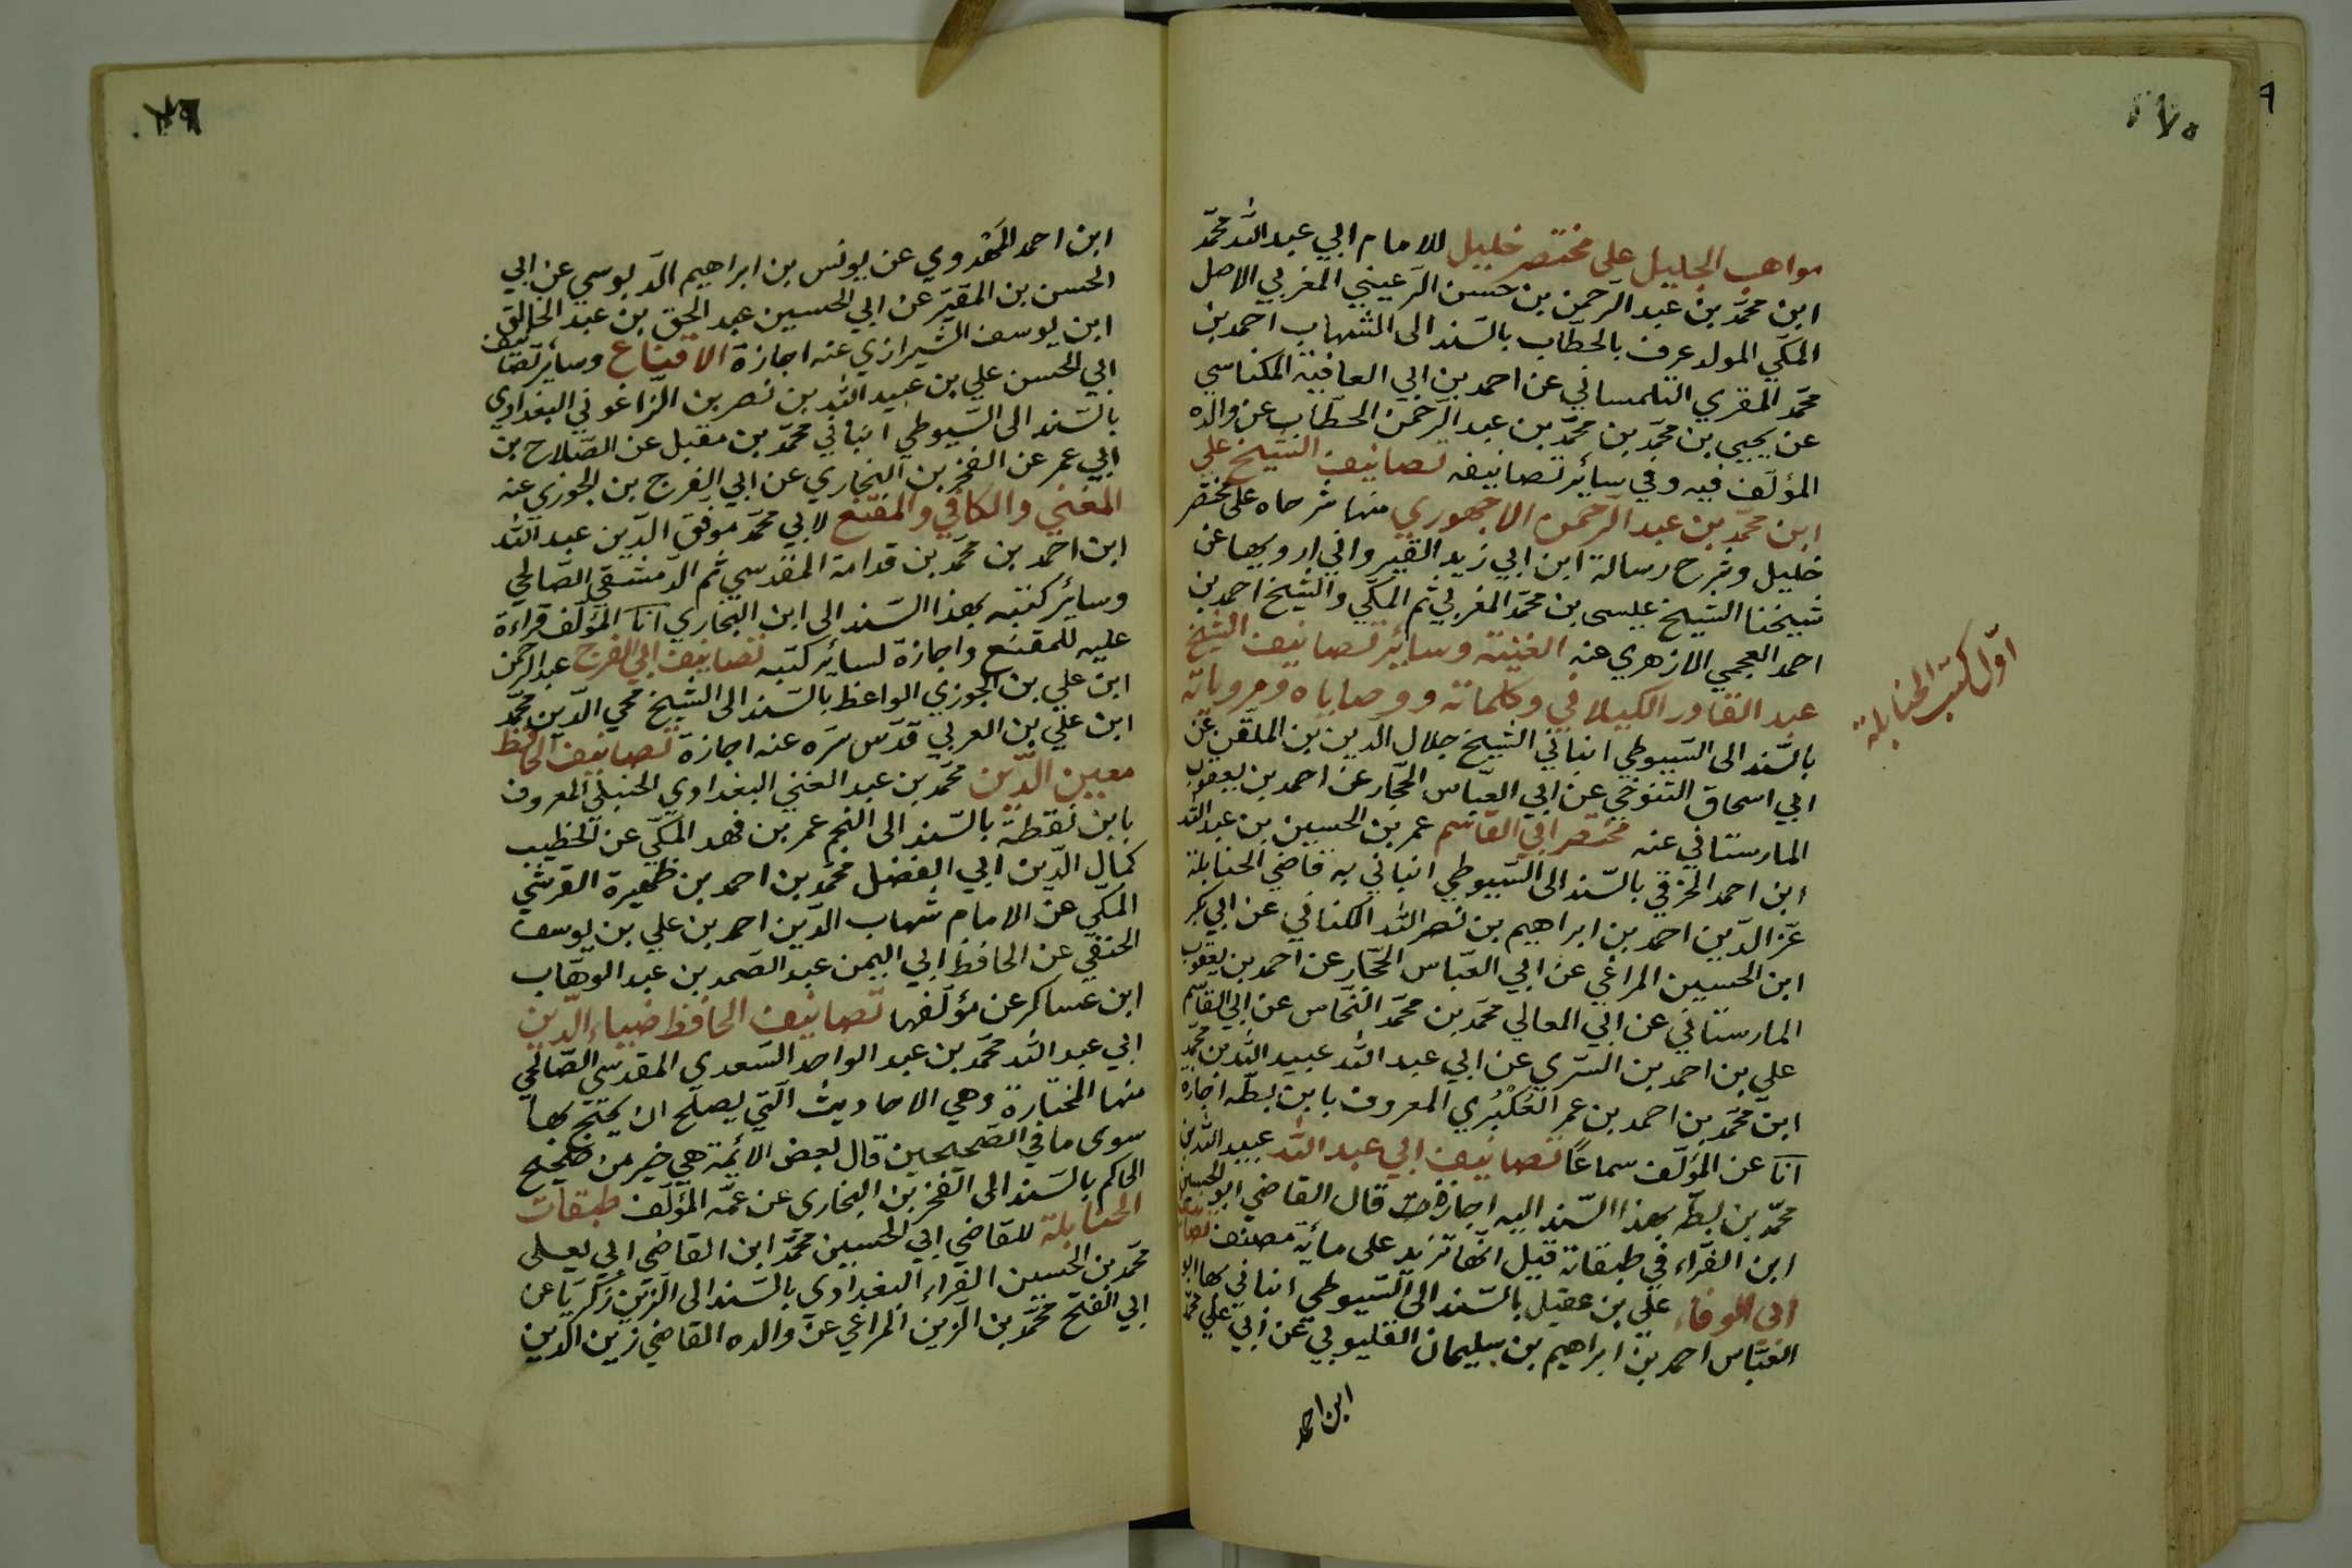 مواهب الجليل على مختصر خليل للامام ابي عبد الله محمّد
ابن محمّد بن عبد الرّحمن بن حسن الرّعيني المغربي الاصل
المكّي المولد عرف بالحطّاب بالسّند الى الشهاب احمد بن
محمّد المقري التلمساني عن احمد بن ابي العافية المكناسي
عن يحيى بن محمّد بن محمّد بن عبد الرّحمن الحطّاب عن والده
المؤلّف فيه وفي سائر تصانيفه تصانيف الشيخ علي
ابن محمّد بن عبد الرّحمن الاجهوري منها شرحاه على مختصر
خليل وشرح رسالة ابن ابي زيد القيرواني ارويها عن
شيخنا الشيخ عيسى بن محمّد المغربي ثم المكّي والشيخ احمد بن
احمد العجمي الازهري عنه الغنية وسائر تصانيف الشيخ
عبد القادر الكيلاني وكلماته ووصاياه ومروياته
بالسّند الى السّيوطي انباني الشيخ جلال الدّين بن الملقّن عن
ابي اسحاق التنوخي عن ابي العبّاس الحجّار عن احمد بن يعقوب
المارستاني عنه مختصر ابي القاسم عمر بن الحسين بن عبد الله
ابن احمد الخرقي بالسّند الى السّيوطي انباني به قاضي الحنابلة
عزّ الدّين احمد بن ابراهيم بن نصر الله الكناني عن ابي بكر
ابن الحسين المراغي عن ابي العبّاس الحجّار عن احمد بن يعقوب
المارستاني عن ابي المعالي محمّد بن محمّد النحّاس عن ابي القاسم
علي بن احمد بن السّري عن ابي عبد الله عبيد الله بن محمّد
ابن محمّد بن احمد بن عمر العُكْبُري المعروف بابن بطّه اجازة
انا عن المؤلّف سماعًا تصانيف ابي عبد الله عبيد الله بن
محمّد بن بطّه بهذا السّند اليه اجازة قال القاضي ابو الحسين
ابن الفرّاء في طبقاته قيل انّها تزيد على مائة مصنّف تصانيف
ابي الوفاء علي بن عقيل بالسّند الى السّيوطي انباني بها ابو
العبّاس احمد بن ابراهيم بن سليمان القليوبي عن ابي علي محمّد
ابن احمد
اوّل كتب الحنابلة
ابن احمد المهدوي عن يونس بن ابراهيم الدّبوسي عن ابي
الحسن بن المقيّر عن ابي الحسين عبد الحق بن عبد الخالق
ابن يوسف الشيرازي عنه اجازة الاقناع وسائر تصانيف
ابي الحسن علي بن عبيد الله بن نصر بن الزّاغوني البغدادي
بالسّند الى السّيوطي انباني محمّد بن مقبل عن الصّلاح بن
ابي عمر عن الفخر بن البخاري عن ابي الفرج بن الجوزي عنه
المغني والكافي والمقنع لابي محمّد موفق الدّين عبد الله
ابن احمد بن محمّد بن قدامة المقدسي ثم الدّمشقي الصّالحي
وسائر كتبه بهذا السّند الى ابن البخاري انا المؤلّف قراءة
عليه للمقنع واجازة لسائر كتبه تصانيف ابي الفرج عبد الرحمن
ابن علي بن الجوزي الواعظ بالسّند الى الشيخ محيي الدّين محمّد
ابن علي بن العربي قدّس سرّه عنه اجازة تصانيف الحافظ
معين الدّين محمّد بن عبد الغني البغدادي الحنبلي المعروف
بابن نقطة بالسّند الى النجم عمر بن فهد المكّي عن الخطيب
كمال الدّين ابي الفضل محمّد بن احمد بن ظهيرة القرشي
المكّي عن الامام شهاب الدّين احمد بن علي بن يوسف
الحنفي عن الحافظ ابي اليمن عبد الصّمد بن عبد الوهّاب
ابن عساكر عن مؤلّفها تصانيف الحافظ ضياء الدّين
ابي عبد الله محمّد بن عبد الواحد السّعدي المقدسي الصّالحي
منها المختارة وهي الاحاديث الّتي يصلح ان يحتج بها
سوى ما في الصّحيحين قال بعض الائمة هي خير من صحيح
الحاكم بالسّند الى الفخر بن البخاري عن عمّه المؤلّف طبقات
الحنابلة للقاضي ابي الحسين محمّد ابن القاضي ابي يعلى
محمّد بن الحسين الفراء البغدادي بالسّند الى الزّين زكريّا عن
ابي الفتح محمّد بن الزّين المراغي عن والده القاضي زين الدّين